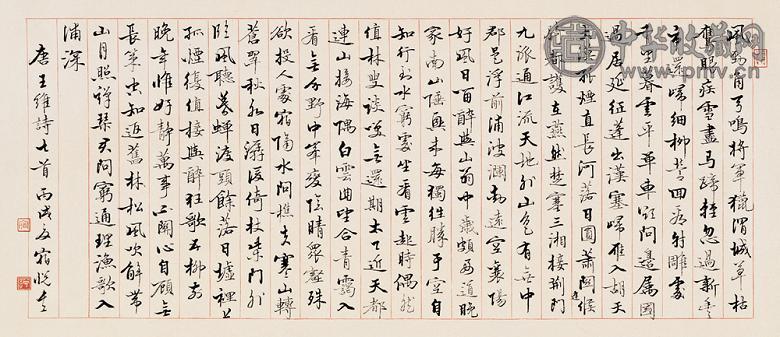 風勁角弓鳴將軍獵渭城草枯
鷹眼疾雪盡馬蹄輕忽過新豐
市還歸細柳營回看射雕處
千里暮雲平單車欲問邊屬國
過居延征蓬出漢塞歸雁入胡天
大漠孤煙直長河落日圓蕭關逢候
騎都護在燕然楚塞三湘接荊門
九派通江流天地外山色有無中
郡邑浮前浦波瀾動遠空襄陽
好風日留醉與山翁中歲頗好道晚
家南山陲興來每獨往勝事空自
知行到水窮處坐看雲起時偶然
值林叟談笑無還期太乙近天都
連山接海隅白雲迴望合青靄入
看無分野中峰變陰晴眾壑殊
欲投人處宿隔水問樵夫寒山轉
蒼翠秋水日潺湲倚杖柴門外
臨風聽暮蟬渡頭餘落日墟裡上
孤煙復值接輿醉狂歌五柳前
晚年惟好靜萬事不關心自顧無
長策空知返舊林松風吹解帶
山月照彈琴君問窮通理漁歌入
浦深
唐王維詩七首丙戌夏宿悅書
中华收藏网